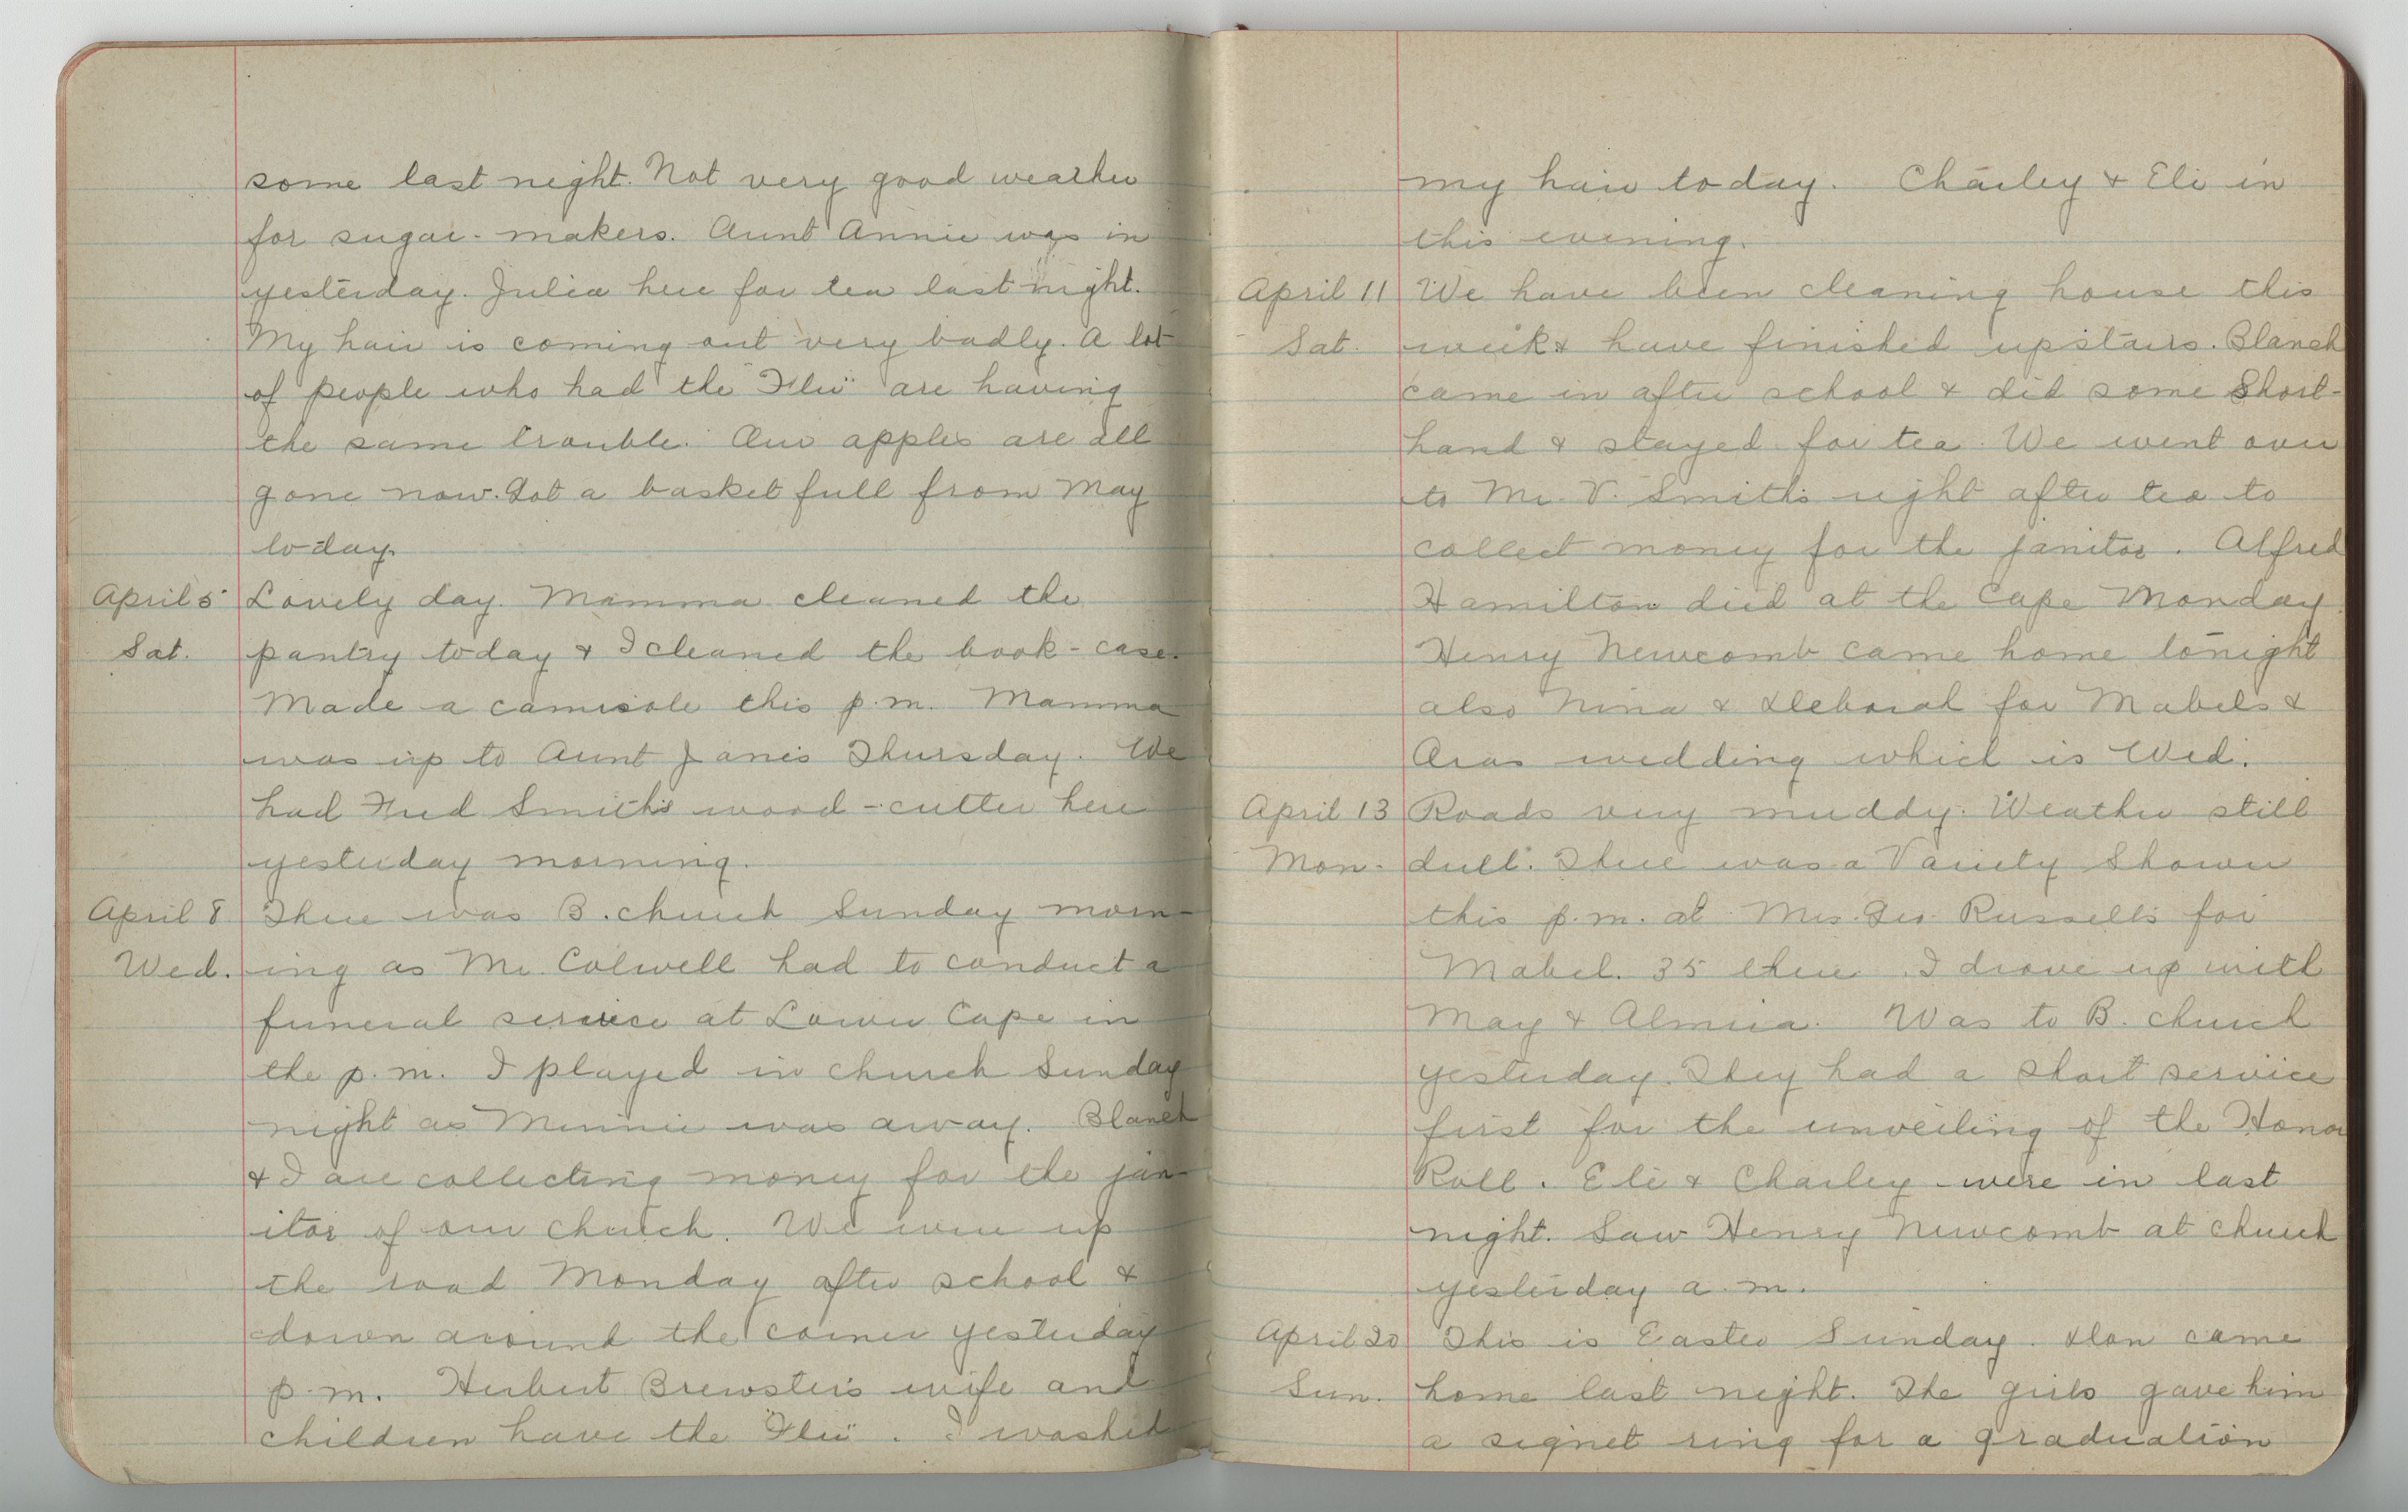 some last night. Not very good weather
for sugar-makers. Aunt Annie was in
yesterday. Julia here for tea last night.
My hair is coming out very badly. A lot
of people who had the "Flu" are having
the same trouble. Our apples are all
gone now. Got a basket full from May
today.
April 5 Lovely day. Mamma cleaned the
Sat. pantry today & I cleaned the book-case.
Made a camisole this p.m. Mamma
was up to Aunt Janes Thursday. We
had Fred Smith's wood-cutter here
yesterday morning.
April 8 There was B. church Sunday morn-
Wed. ing as Mr. Colwell had to conduct a
funeral service at Lower Cape in
the p.m. I played in church Sunday
night as Minnie was away. Blanch
& I are collecting money for the jan-
itor of our church. We were up
the road Monday after school &
down around the corner yesterday
p.m. Herbert Brewster's wife and
children have the "Flu". I washed
my hair today. Charley & Eli in
this evening.
April 11 We have been cleaning house this
Sat. week & have finished upstairs. Blanch
came in after school & did some Short-
hand & stayed for tea. We went over
to Mr. V. Smith's right after tea to
collect money for the janitor. Alfred
Hamilton died at the Cape Monday.
Henry Newcomb came home tonight
also Nina & Deborah for Mabels &
Aras wedding which is Wed.
April 13 Roads very muddy. Weather still
Mon. dull. There was a Variety Shower
this p.m. at Mrs. Geo. Russell's for
Mabel. 35 there. I drove up with
May & Almira. Was to B. church
yesterday. They had a short service
first for the unveiling of the Honor
Roll. Eli & Charley were in last
night. Saw Henry Newcomb at church
yesterday a.m.
April 20 This is Easter Sunday. Don came
Sun. home last night. The girls gave him
a signet ring for a graduation